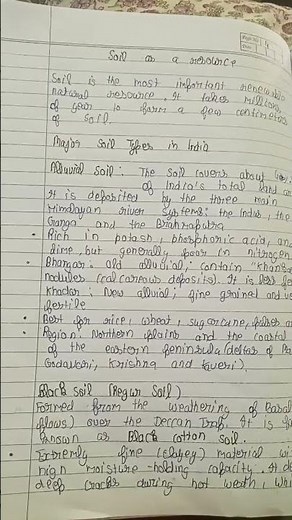 Soil as a resource
Soil is the most important renewable
natural resource. It takes millions
of year to form a few centimeters
of soil.
Major Soil Types in India
Alluvial soil: The soil covers about
of India's total land
It is deposited by the three main
Himalayan river systems: the Indus, the
Ganga and the Brahmaputra
Rich in potash, phosphoric acid, an
lime, but generally poor in nitrogen
Bhangar: Old alluvial, contain "Khan
nodules (calcareous deposits). It is less fe
Khadar: New alluvial; fine grained and
fertile
Best for rice, wheat, sugarcane, pulses
Region: Northern plains and the coastal
of the eastern peninsula (deltas of
Godavari, Krishna and Kaveri).
Black soil (Regur Soil)
Formed from the weathering of Basal
flows) over the Deccan Trap. It is
known as Black cotton soil.
Extremly fine (Clayey) material wi
high moisture-holding capacity. It de
deep cracks during hot weath, whi